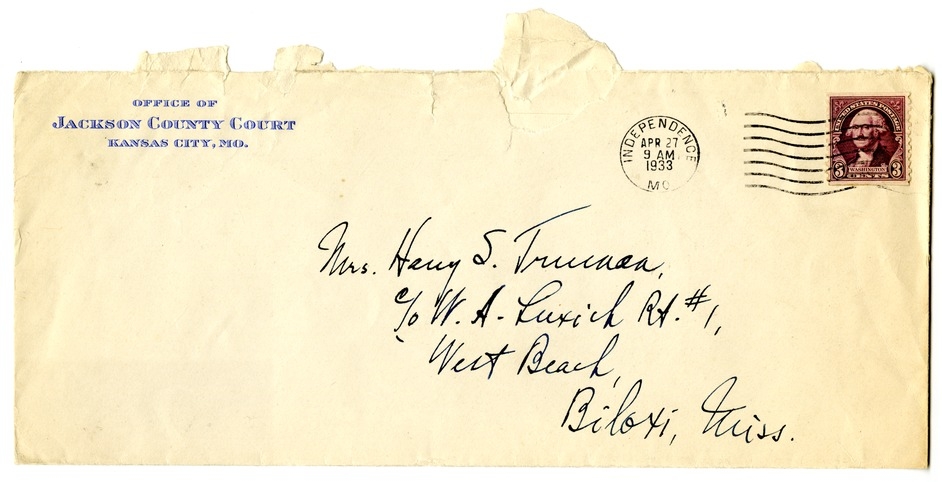 OFFICE OF
JACKSON COUNTY COURT
KANSAS CITY, MO.
INDEPENDENCE
APR 27
9 AM
1933
MO
UNITED STATES POSTAGE
3 WASHINGTON 3
CENTS
Mrs. Harry S. Truman,
c/o W. A. Luxich Rt. #1,
West Beach,
Biloxi, Miss.